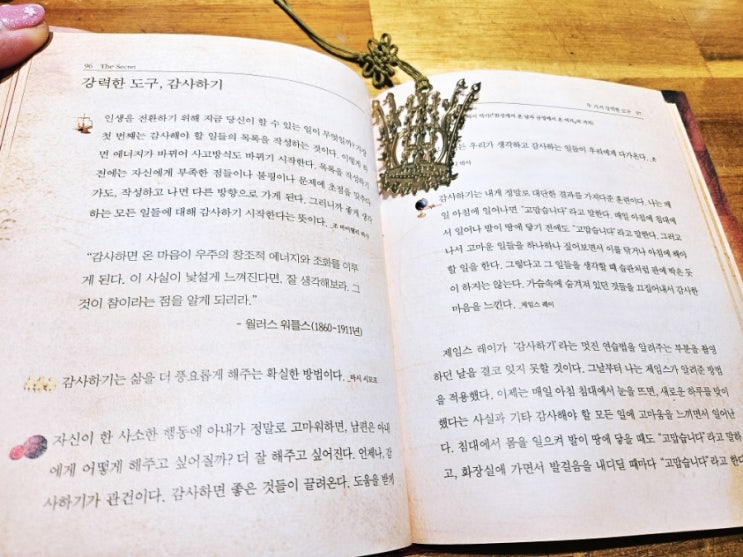 96 The Secret
강력한 도구, 감사하기
인생을 전환하기 위해 지금 당신이 할 수 있는 일이 무엇일까? 가장
첫 번째는 감사해야 할 일들의 목록을 작성하는 것이다. 이렇게 하
면 에너지가 바뀌어 사고방식도 바뀌기 시작한다. 목록을 작성하기
전에는 자신에게 부족한 점들이나 불평이나 문제에 초점을 맞추다
가도, 작성하고 나면 다른 방향으로 가게 된다. 그러니까 좋게 생각
하는 모든 일들에 대해 감사하기 시작한다는 뜻이다.
“감사하면 온 마음이 우주의 창조적 에너지와 조화를 이루
게 된다. 이 사실이 낯설게 느껴진다면, 잘 생각해보라. 그
것이 참이라는 점을 알게 되리라.”
- 월러스 워틀스(1860~1911년)
감사하기는 삶을 더 풍요롭게 해주는 확실한 방법이다. _마시 시모프
자신이 한 사소한 행동에 아내가 정말로 고마워하면, 남편은 아내
에게 어떻게 해주고 싶어질까? 더 잘 해주고 싶어진다. 언제나, 감
사하기가 관건이다. 감사하면 좋은 것들이 끌려온다. 도움을 받게
두 가지 강력한 도구 97
우리가 생각하고 감사하는 일들이 우리에게 다가온다.
감사하기는 내게 정말로 대단한 결과를 가져다준 훈련이다. 나는 매
일 아침에 일어나면 “고맙습니다”라고 말한다. 매일 아침에 침대에
서 일어나 발이 땅에 닿기 전에도 “고맙습니다”라고 말한다. 그러고
나서 고마운 일들을 하나하나 짚어보면서 이를 닦거나 아침에 해야
할 일을 한다. 그렇다고 그 일들을 생각할 때 습관처럼 판에 박은 듯
이 하지는 않는다. 가슴속에 숨겨져 있던 것들을 끄집어내서 감사한
마음을 느낀다. _제임스 레이
제임스 레이가 ‘감사하기’라는 멋진 연습법을 알려주는 부분을 촬영
하던 날을 결코 잊지 못할 것이다. 그날부터 나는 제임스가 알려준 방법
을 적용했다. 이제는 매일 아침 침대에서 눈을 뜨면, 새로운 하루를 맞이
했다는 사실과 기타 감사해야 할 모든 일에 고마움을 느끼면서 일어난
다. 침대에서 몸을 일으켜 발이 땅에 닿을 때도 “고맙습니다”라고 말하
고, 화장실에 가면서 발걸음을 내디딜 때마다 “고맙습니다”라고 한다